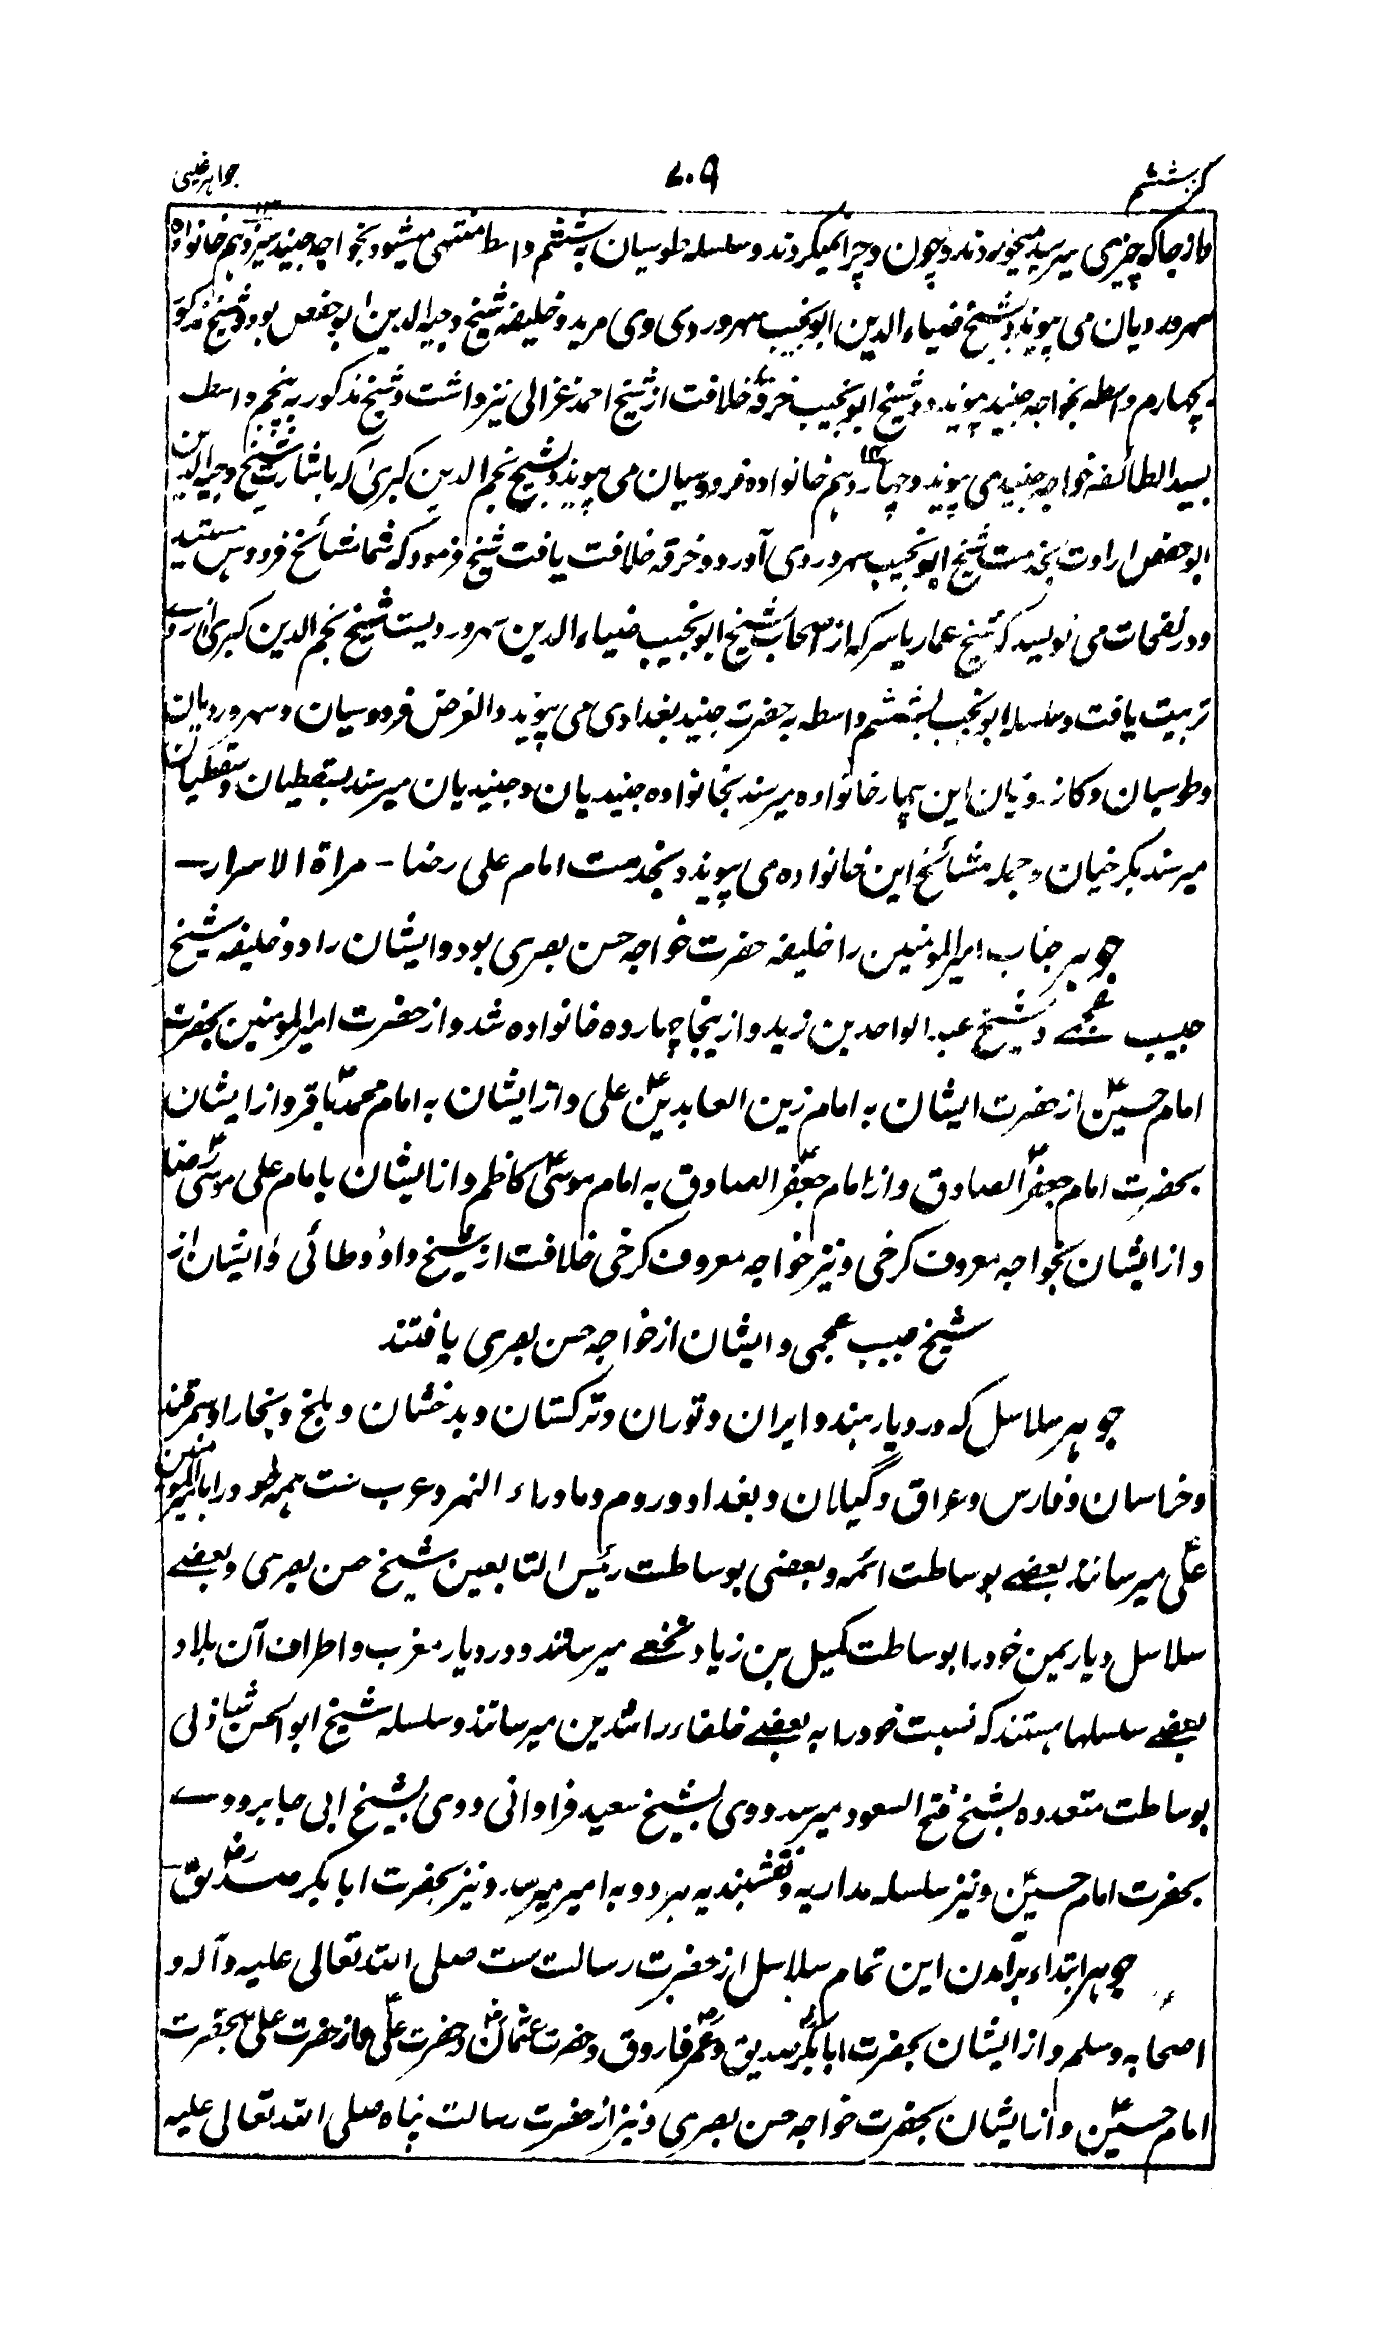 کنز ششم ۷۰۹ جواهر غیبی
و از جا که چیزی میرسید میخوردند و چون و چرا نمیکردند و سلسله طوسیان به ششم واسطه منتهی میشود بخواجه جنید سیزدهم خانواده
سهروردیان می پیوندد بشیخ ضیاء الدین ابو نجیب سهروردی وی مرید و خلیفه شیخ وجیه الدین ابو حفص بود و شیخ مذکور
بچهارم واسطه بخواجه جنید پیوندد و شیخ ابو نجیب خرقه خلافت از شیخ احمد غزالی نیز داشت و شیخ مذکور به پنجم واسطه
بسید الطائفه خواجه جنید می پیوندد چهاردهم خانواده فردوسیان می پیوندد بشیخ نجم الدین کبری که باشارت شیخ وجیه الدین
ابو حفص ارادت بخدمت شیخ ابو نجیب سهروردی آورد و خرقه خلافت یافت شیخ فرمود که شما مشائخ فردوس هستید
و در نفحات می نویسد که شیخ عمار یاسر که از اصحاب شیخ ابو نجیب ضیاء الدین سهروردیست شیخ نجم الدین کبری از وے
تربیت یافت و سلسله ابو نجیب بششم واسطه به حضرت جنید بغدادی می پیوندد الغرض فردوسیان و سهروردیان
و طوسیان و کازرونیان این چهار خانواده میرسند بخانواده جنیدیان و جنیدیان میرسند بسقطیان و سقطیان
میرسند بکرخیان و جمله مشائخ این خانواده می پیوندد بخدمت امام علی رضا - مراة الاسرار
جوهر جناب امیر المومنین را خلیفه حضرت خواجه حسن بصری بود و ایشان را دو خلیفه شیخ
حبیب عجمے و شیخ عبد الواحد بن زید و از ینجا چهارده خانواده شد و از حضرت امیر المومنین بحضرت
امام حسینؑ از حضرت ایشان به امام زین العابدینؑ علی و از ایشان به امام محمدؑ باقر و از ایشان
بحضرت امام جعفرؑ الصادق و از امام جعفرؑ الصادق به امام موسیؑ کاظم و از ایشان بامام علی موسیؑ رضا
و از ایشان بخواجه معروف کرخی و نیز خواجه معروف کرخی خلافت از شیخ داؤد طائی و ایشان از
شیخ حبیب عجمی و ایشان از خواجه حسن بصری یافتند
جوهر سلاسل که در دیار هند و ایران و توران و ترکستان و بدخشان و بلخ و بخارا و سمرقند
و خراسان و فارس و عراق و گیلان و بغداد و روم و ماوراء النهر و عرب ست همه خود را بامیر المومنین
علیؑ میرسانند بعضے بوساطت ائمه و بعضی بوساطت رئیس التابعین شیخ حسن بصری و بعضے
سلاسل دیار یمن خود را بوساطت کمیل بن زیاد نخعے میرسانند و در دیار مغرب و اطراف آن بلاد
بعضے سلسلها هستند که نسبت خود را به بعضے خلفاء راشدین میرسانند و سلسله شیخ ابو الحسن شاذلی
بوساطت متعدده بشیخ فتح السعود میرسد و وی بشیخ سعید فراوانی و وی بشیخ ابی جابر و وے
بحضرت امام حسینؑ و نیز سلسله مداریه و نقشبندیه هر دو به امیر میرسد و نیز بحضرت ابا بکر صدیقؓ
جوهر ابتداء برآمدن این تمام سلاسل از حضرت رسالت ست صلی الله تعالی علیه و آله و
اصحابه وسلم و از ایشان بحضرت ابا بکرؓ صدیق و عمرؓ فاروق و حضرت عثمانؓ و حضرت علیؑ و از حضرت علیؑ بحضرت
امام حسینؑ و از ایشان بحضرت خواجه حسن بصری و نیز از حضرت رسالت پناه صلی الله تعالی علیه